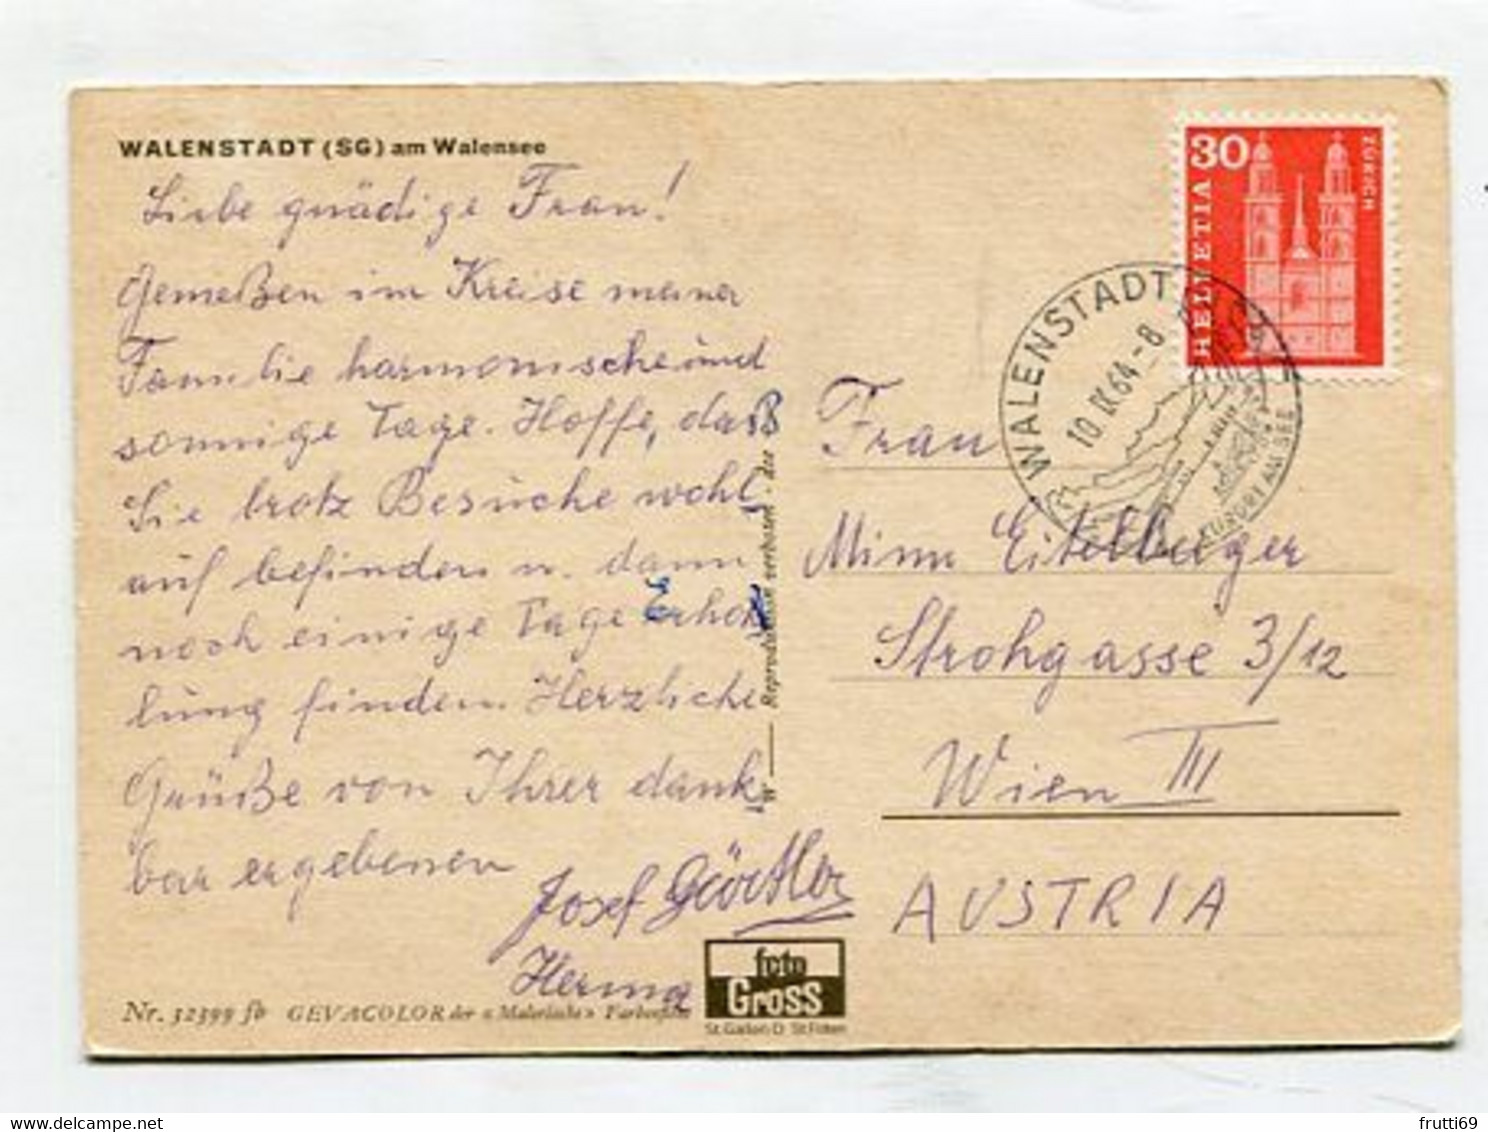 WALENSTADT (SG) am Walensee
Liebe gnädige Frau!
Genießen im Kreise meiner
Familie harmonische und
sonnige Tage. Hoffe, daß
Sie trotz Besuche wohl
auf befinden u. dann
noch einige Tage Erho-
lung finden. Herzliche
Grüße von Ihrer dank
bar ergebenen
Josef Gürtler
Herma
Nr. 32399 fb GEVACOLOR der « Malerische »
foto
Gross
St. Gallen O St. Fiden
W — Reproduktion verboten
30
HELVETIA
ZÜRICH
WALENSTADT
10 IX 64 - 8
KURORT AM SEE
Frau
Minna Eitelberger
Strohgasse 3/12
Wien III
AUSTRIA
frutti69